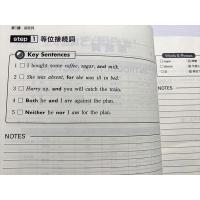 step 1 等位接続詞
Key Sentences
1 I bought some coffee, sugar, and milk.
2 She was absent, for she was ill in bed.
3 Hurry up, and you will catch the train.
4 Both he and I are against the plan.
5 Neither he nor I am for the plan.
NOTES
Words & Phrases
sugar
absent
ill
NOTES